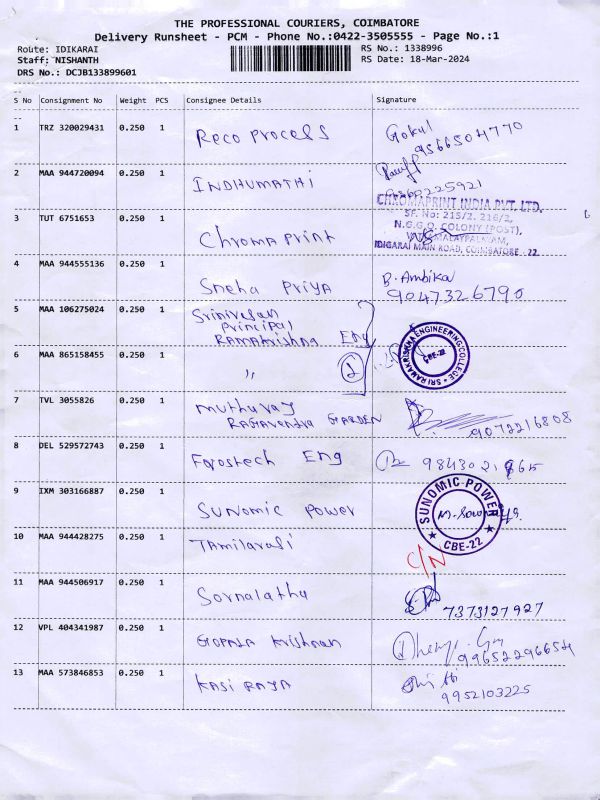 THE PROFESSIONAL COURIERS, COIMBATORE
Delivery Runsheet - PCM - Phone No.:0422-3505555 - Page No.:1
Route: IDIKARAI RS No.: 1338996
Staff: NISHANTH RS Date: 18-Mar-2024
DRS No.: DCJB133899601
S No Consignment No Weight PCS Consignee Details Signature
1 TRZ 320029431 0.250 1 Reco process Gokul
9566504770
2 MAA 944720094 0.250 1 INDHUMATHI
3 TUT 6751653 0.250 1 Chroma Print
CHROMAPRINT INDIA PVT. LTD.
SF. No: 215/2, 216/2,
N.G.G.O. COLONY (POST),
IDIGARAI MAIN ROAD, COIMBATORE - 22.
4 MAA 944555136 0.250 1 Sneha Priya B. Ambika
9047326790
5 MAA 106275024 0.250 1 Srinivasan
Principal
Ramakrishna Eng
SRI RAMAKRISHNA ENGINEERING COLLEGE
CBE-22
6 MAA 865158455 0.250 1 " 2
7 TVL 3055826 0.250 1 Muthuraj
RAGAVENDRA GARDEN 9072216808
8 DEL 529572743 0.250 1 Forostech Eng
9 IXM 303166887 0.250 1 SUNOMIC POWER
SUNOMIC POWER
CBE-22
10 MAA 944428275 0.250 1 TAMILARASI C/N
11 MAA 944506917 0.250 1 Sornalatha 7373127927
12 VPL 404341987 0.250 1 GOPALA Krishnan
99652296654
13 MAA 573846853 0.250 1 KASI RAJA
9952103225